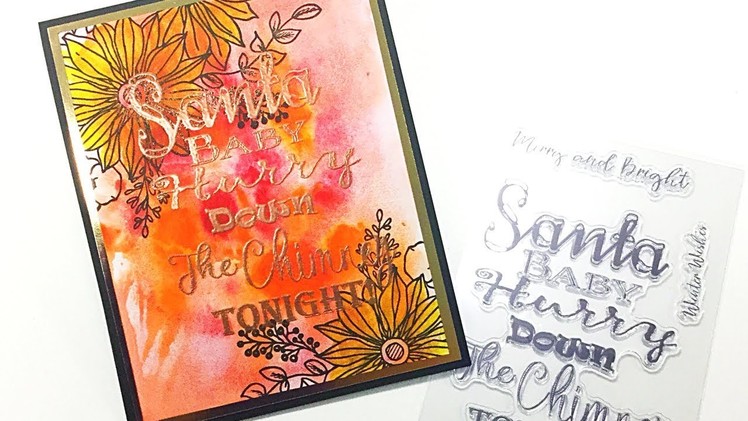 Santa
BABY
Hurry
DOWN
The Chimney
TONIGHT!
Merry and Bright
Santa
BABY
Hurry
DOWN
The Chimney